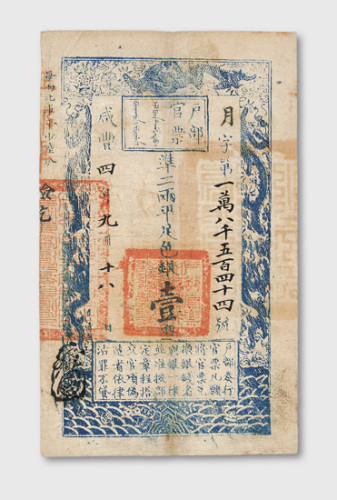 戶部
官票
月字第一萬八千五百四十四號
準二兩平足色銀壹兩
咸豐四年九月十八日
每兩比庫平少陸分
戶部奏行
官票凡願
將官票兌
換銀錢者
與銀一律
並准按部
定章程搭
交官項偽
造者依律
治罪不貸